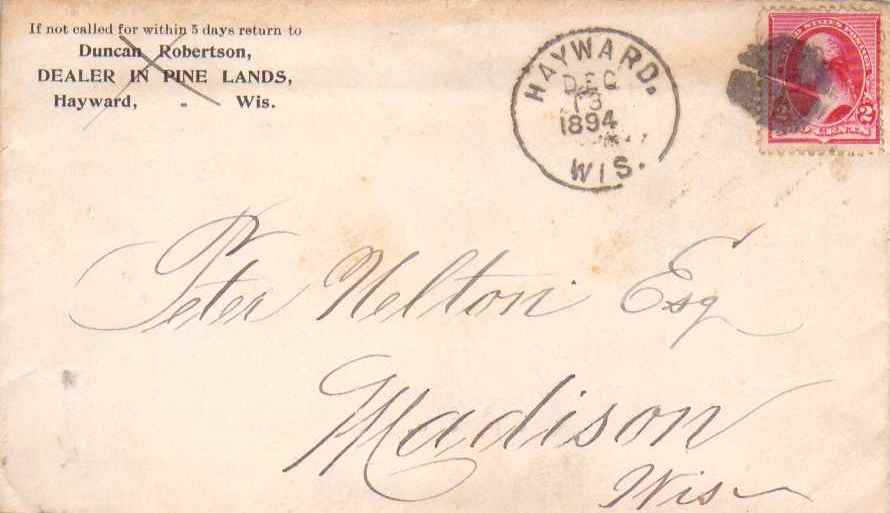 If not called for within 5 days return to
Duncan Robertson,
DEALER IN PINE LANDS,
Hayward, - Wis.
HAYWARD.
DEC
13
1894
WIS.
UNITED STATES POSTAGE
2 2
CENTS
Peter Nelton Esq
Madison
Wis